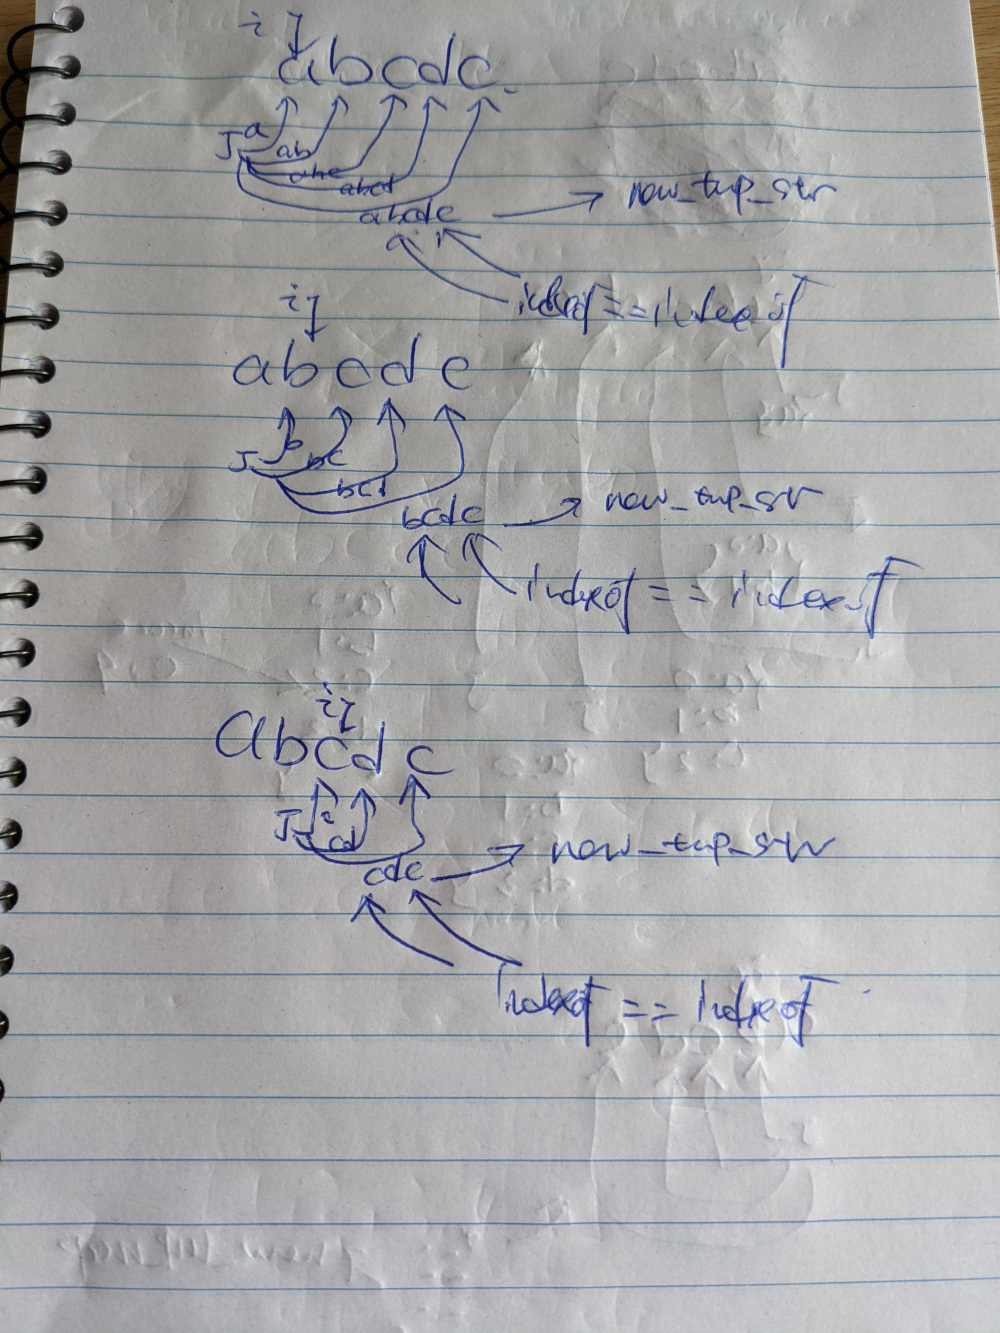 i j
abcde.
a
J ab
abc
abcd
abcde → now_tmp_str
indexof == indexof
i j
abcde
b
J bc
bcd
bcde → now_tmp_str
indexof == indexof
i j
abcde
J c
cd
cde → now_tmp_str
indexof == indexof